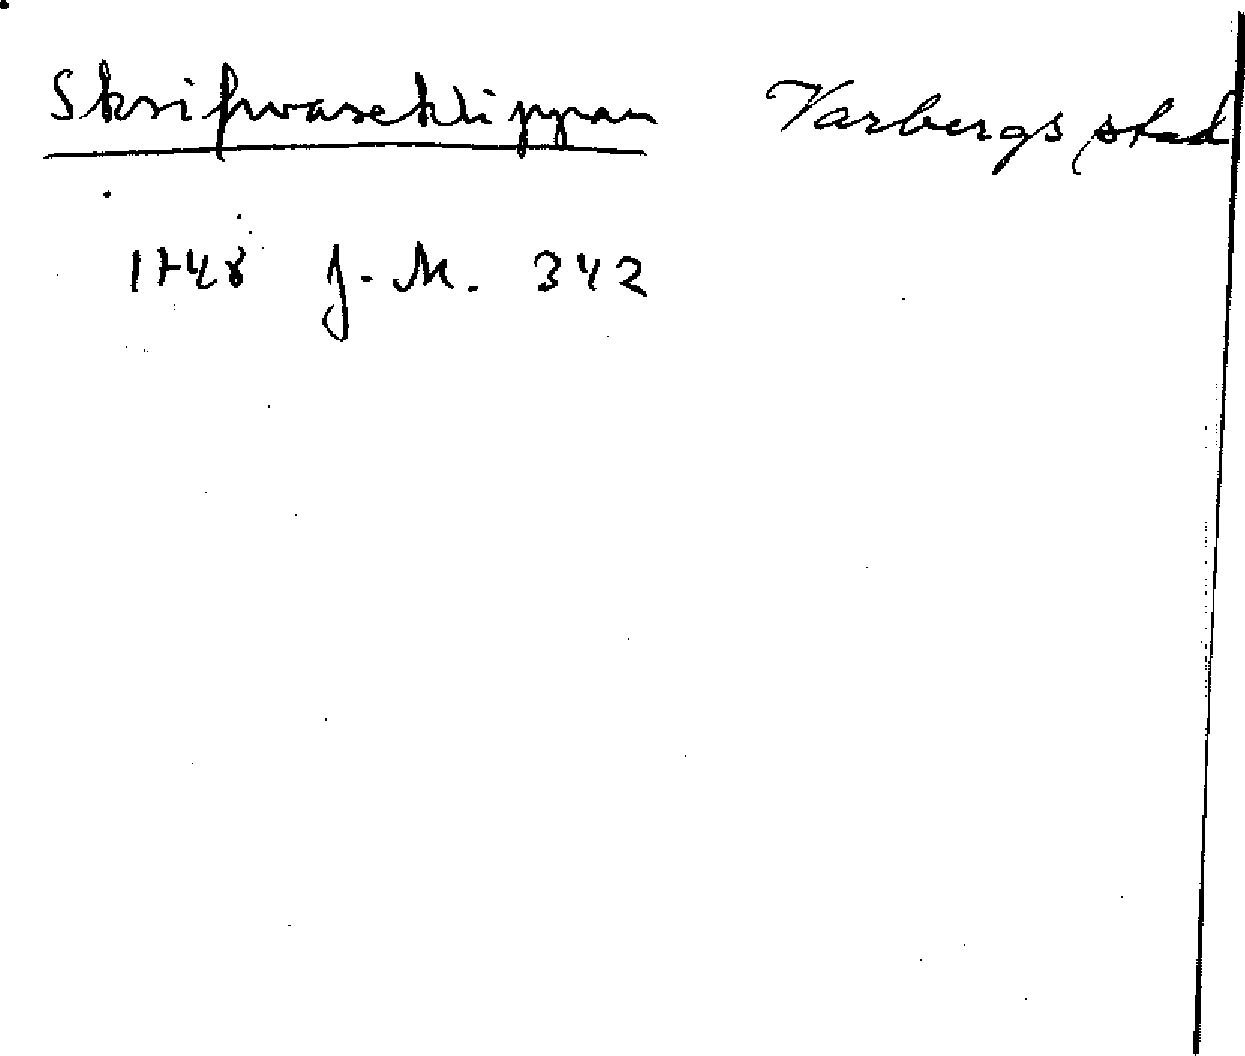 Skrifwareklippan Varbergs stad
1748 J. M. 342